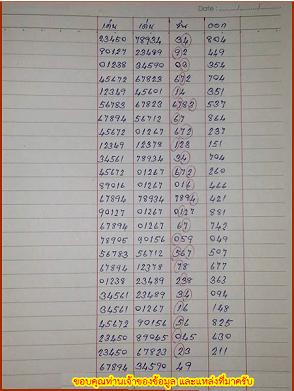 Date :
เด่น เด่น ชน ออก
23450 78934 34 804
90127 23489 92 449
01238 34590 03 354
45672 67823 672 704
12349 45601 14 351
56783 67823 6783 537
67894 56712 67 864
45672 01267 672 237
12349 12378 123 151
34561 78934 34 704
45672 01267 672 260
89016 01267 016 466
67894 78934 7894 421
90127 01267 0127 881
67894 01267 67 742
78905 90156 059 049
56783 56712 567 507
67894 12378 78 677
01238 23489 238 363
34561 23489 34 094
34561 01267 16 148
45672 90156 56 825
23450 89045 045 630
23450 67823 23 211
67894 34590 49
ขอบคุณท่านเจ้าของข้อมูล และแหล่งที่มาครับ